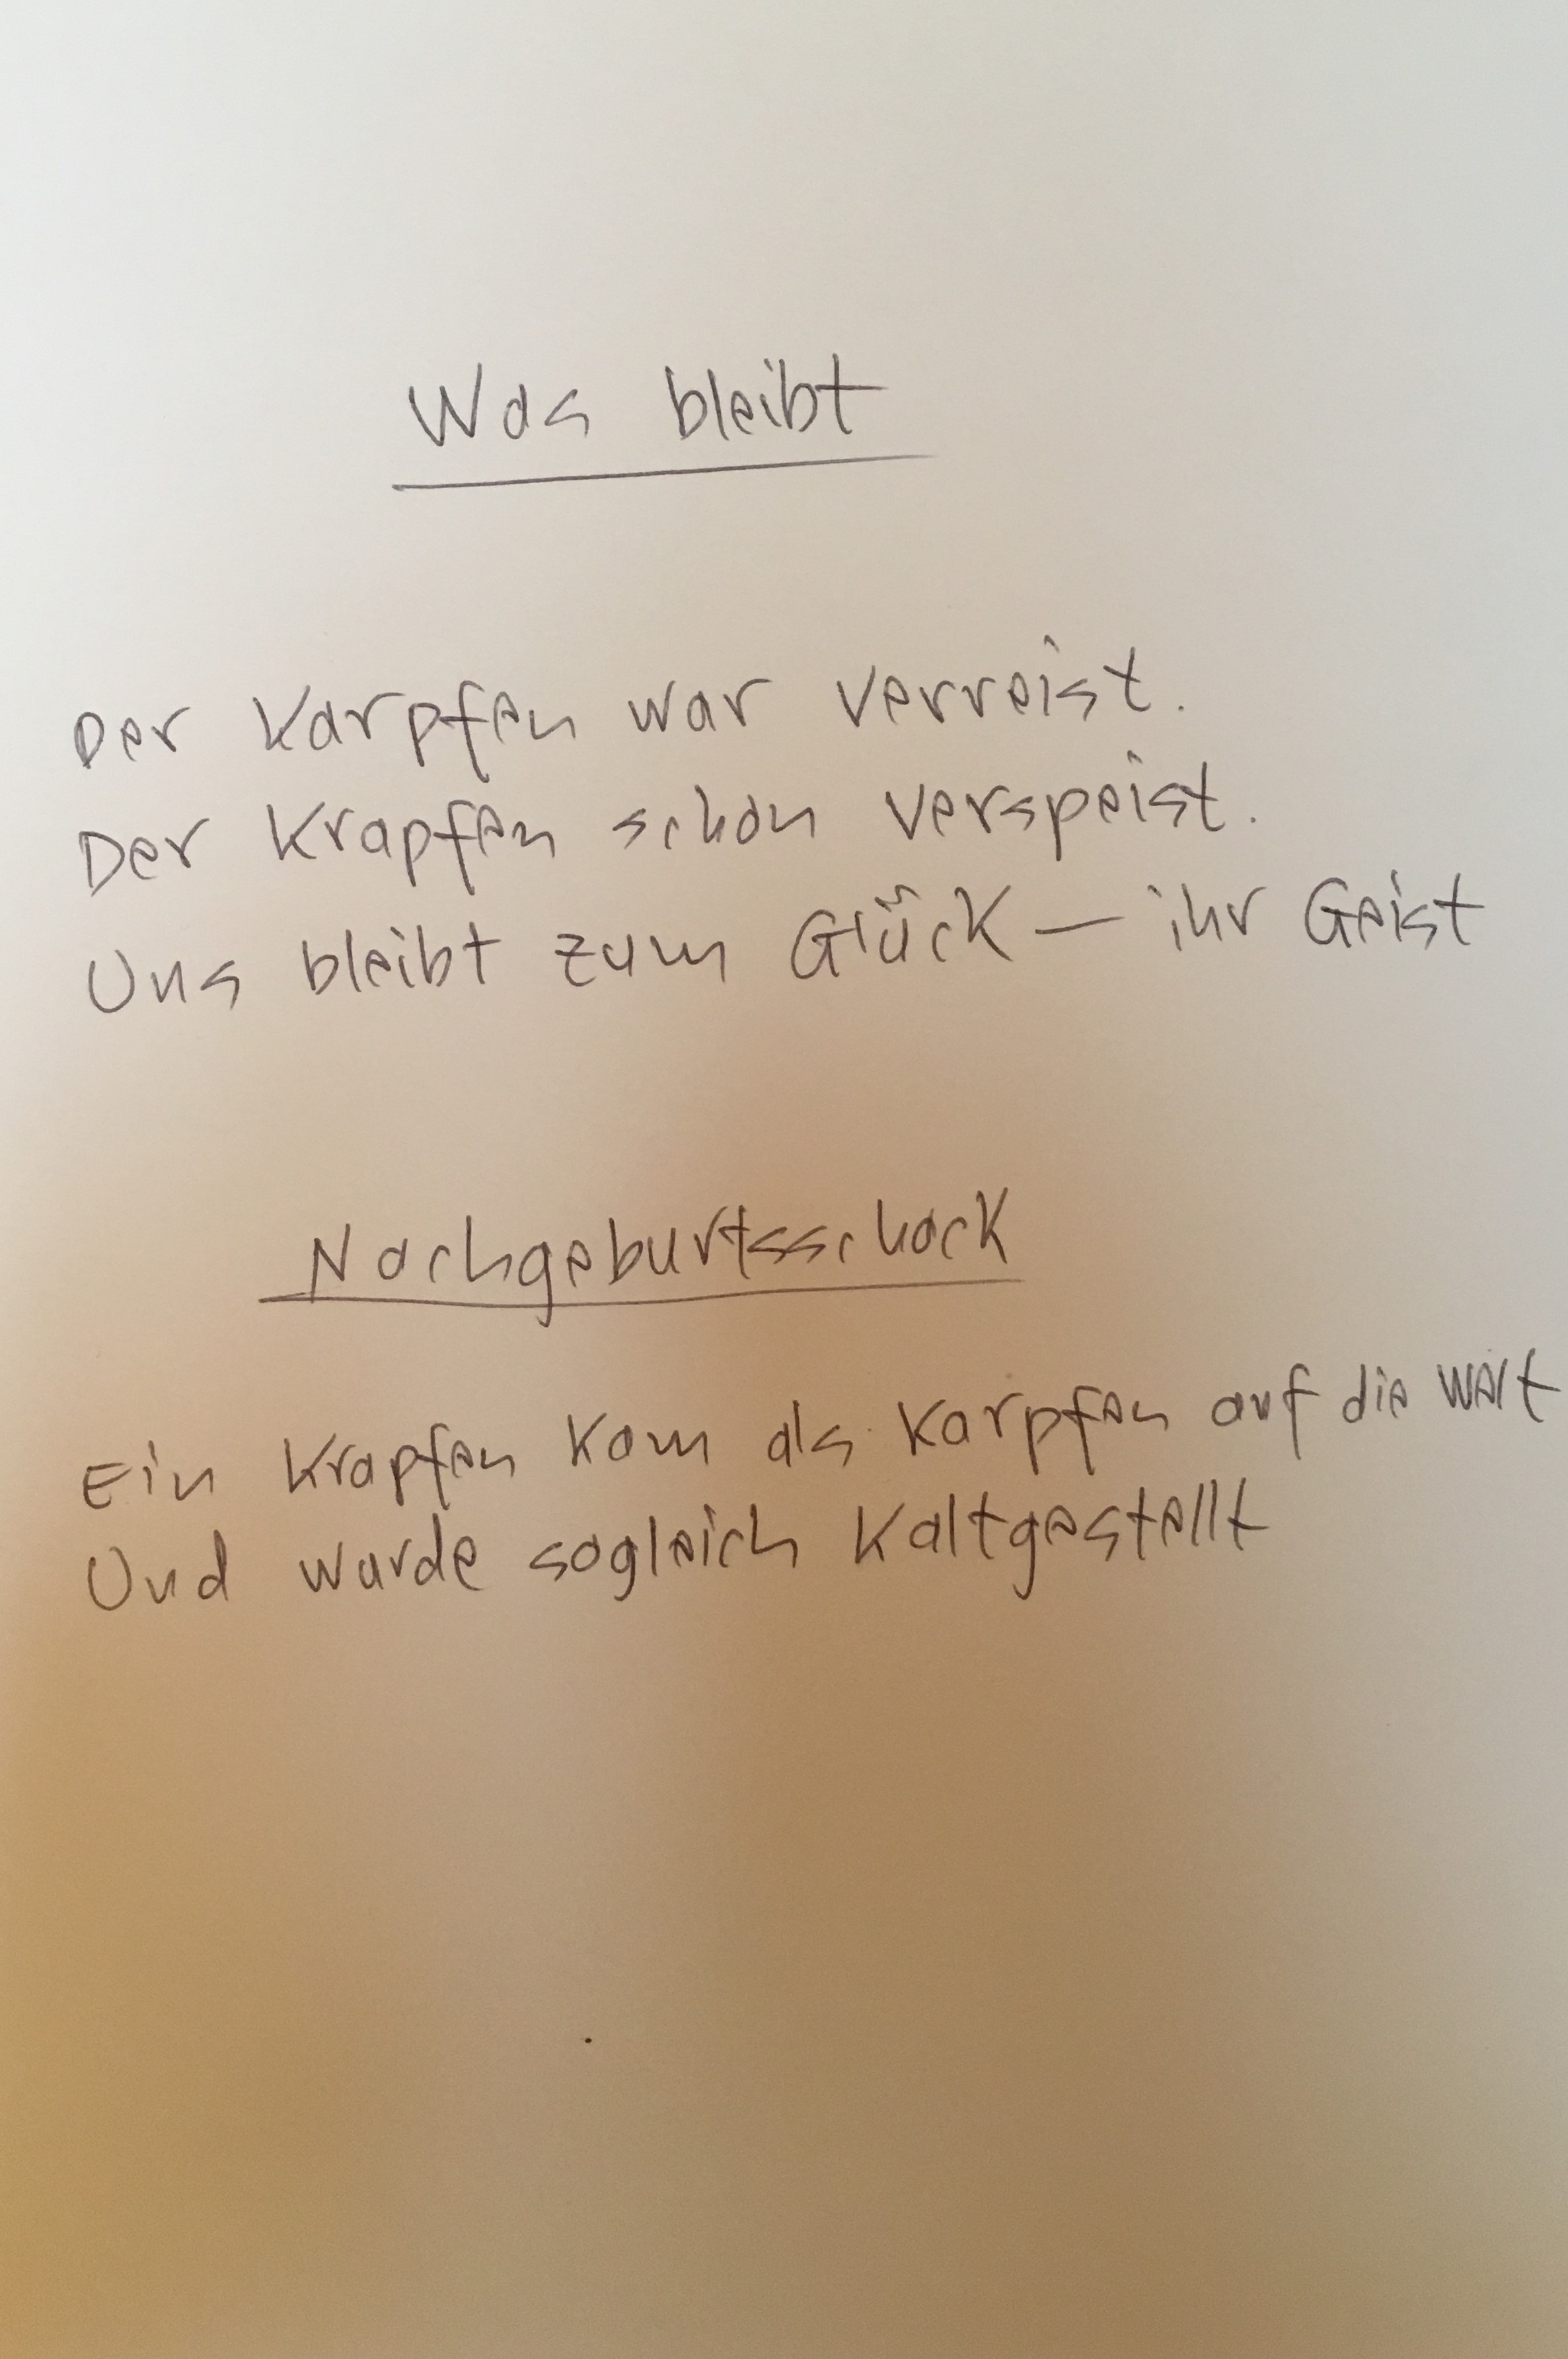 Was bleibt
Der Karpfen war verreist.
Der Krapfen schon verspeist.
Uns bleibt zum Glück – ihr Geist
Nachgeburtsschock
Ein Krapfen kam als Karpfen auf die Welt
Und wurde sogleich kaltgestellt